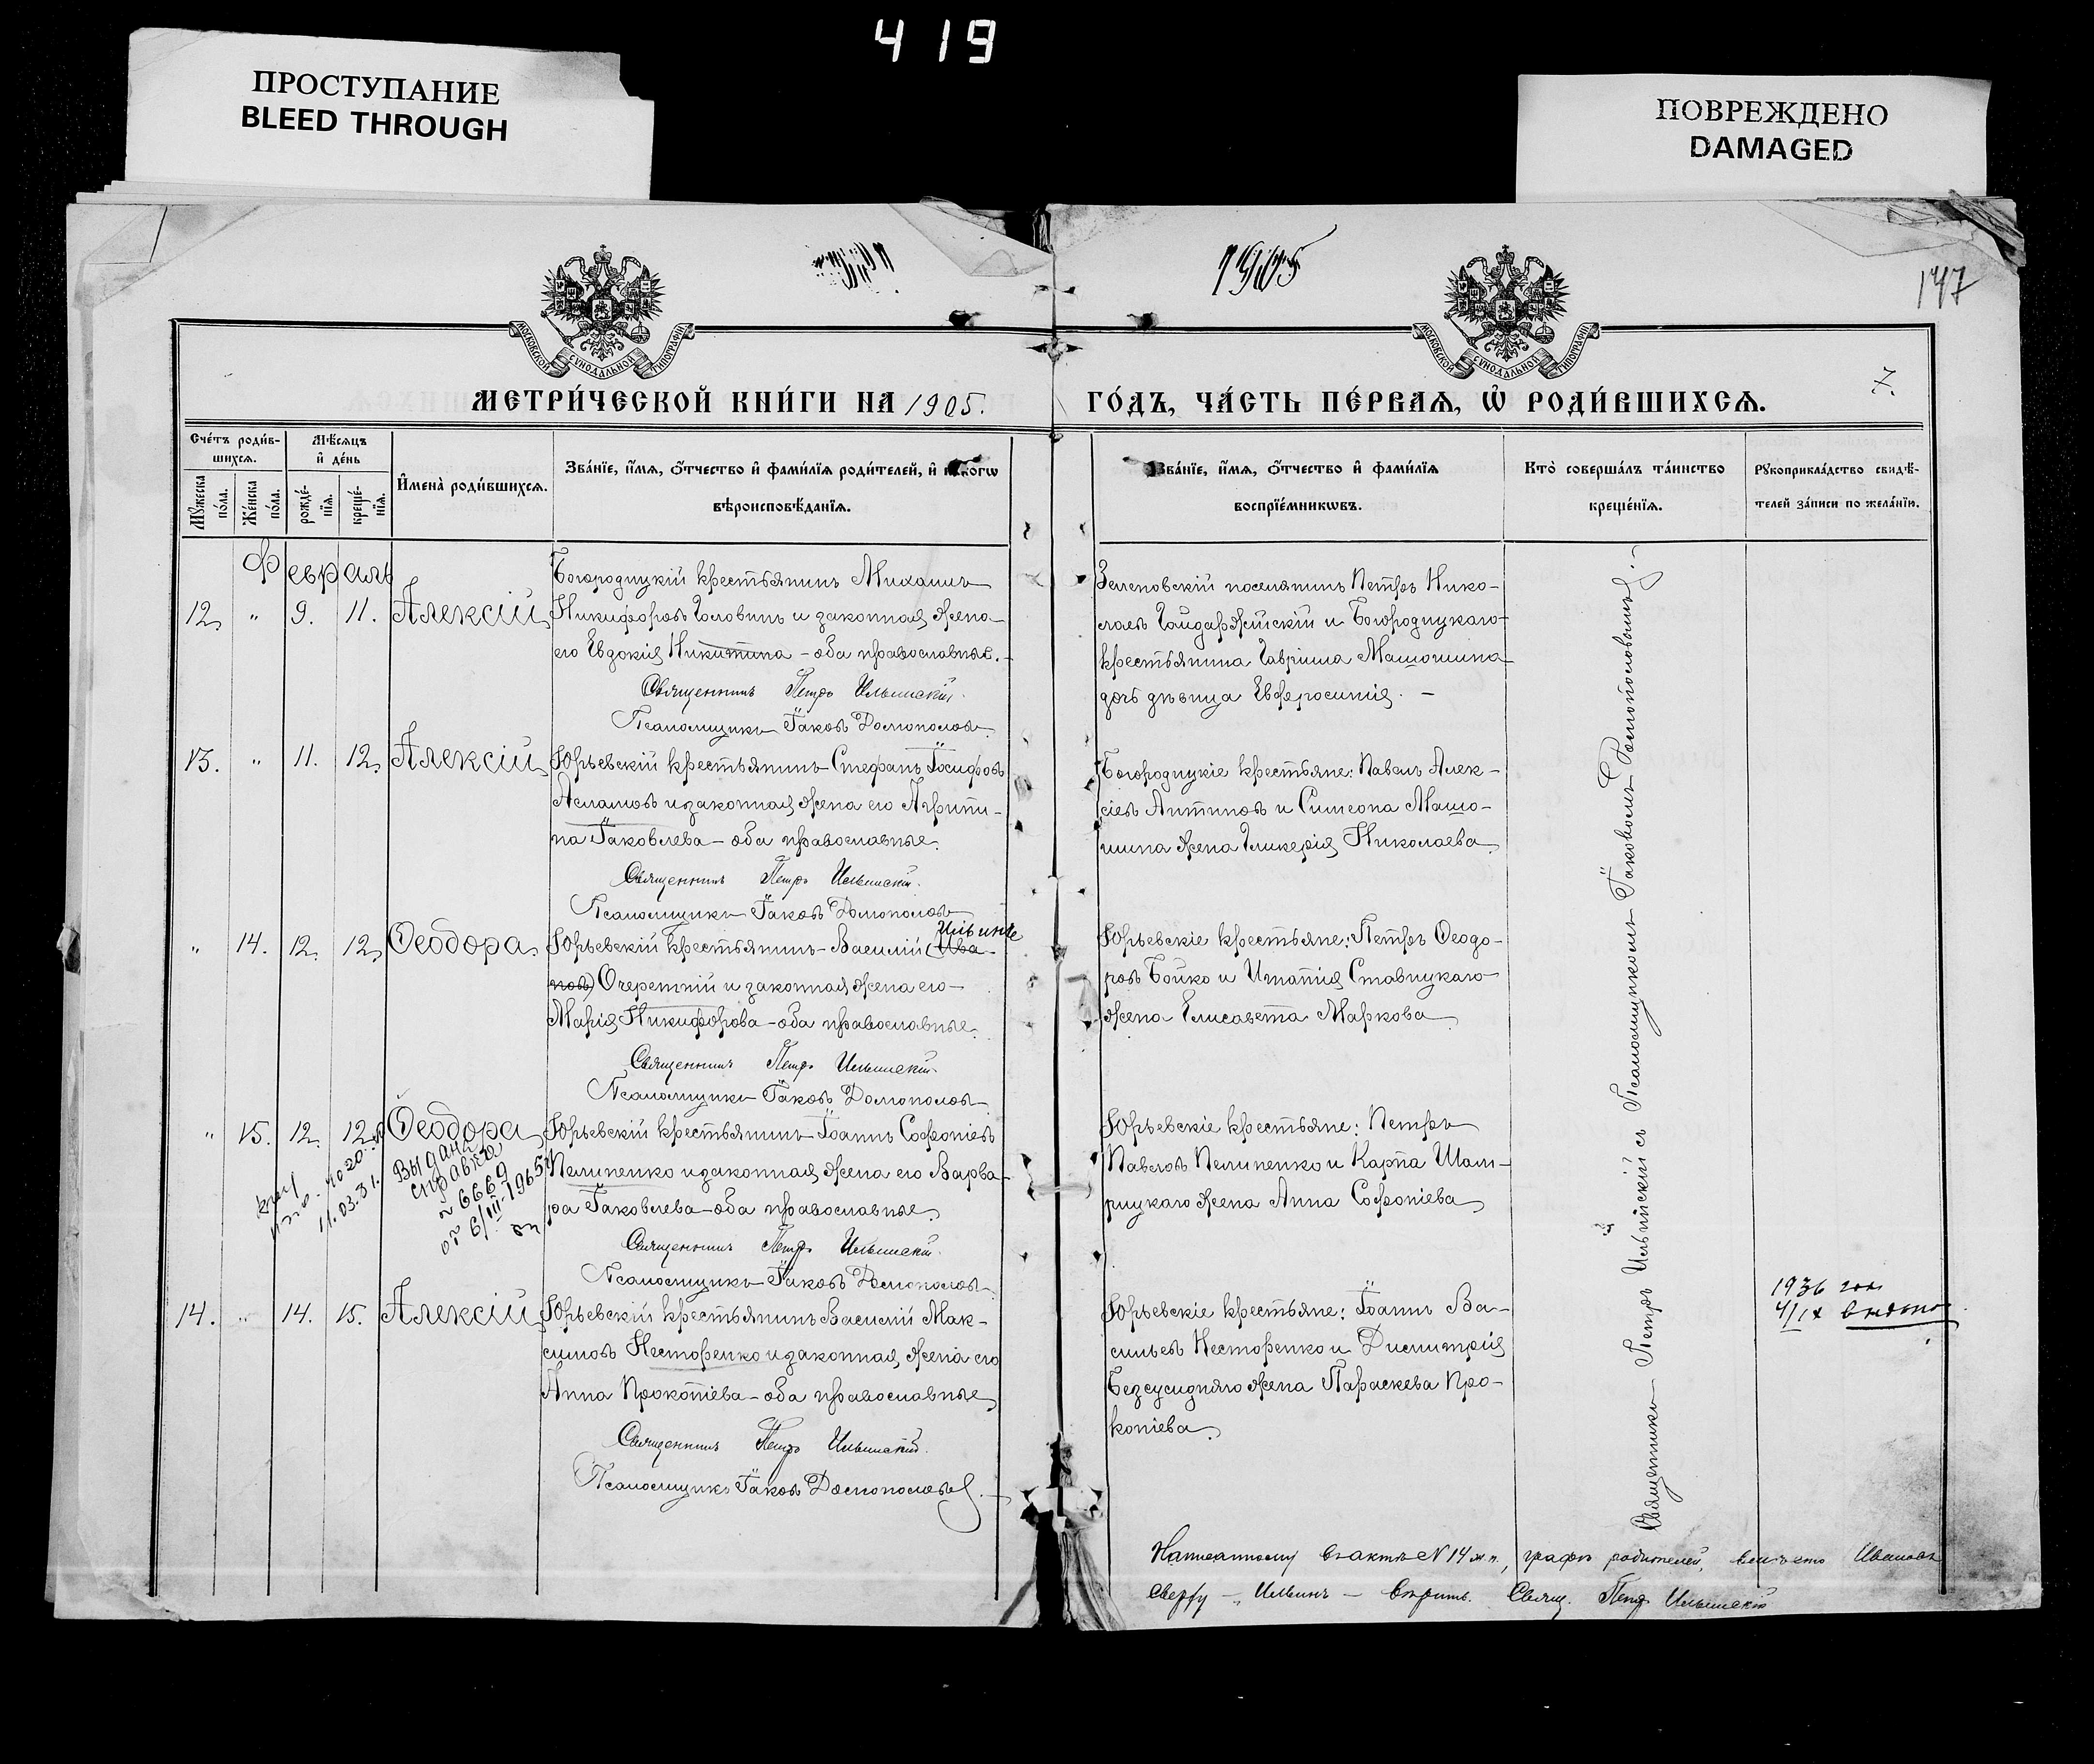 419
ПРОСТУПАНИЕ
BLEED THROUGH
ПОВРЕЖДЕНО
DAMAGED
1905
147
МОСКОВСКОЙ СѴНОДАЛЬНОЙ ТИПОГРАФІИ
МОСКОВСКОЙ СѴНОДАЛЬНОЙ ТИПОГРАФІИ
МЕТРИ́ЧЕСКОЙ КНИ́ГИ НА 1905.
ГО́ДЪ, ЧА́СТЬ ПЕ́РВАЯ, Ѡ҆ РОДИ́ВШИХСЯ.
7.
Сче́тъ роди́в-
шихся.
Мꙋжеска по́ла.
Же́нска по́ла.
Мѣ́сяцъ
и҆ де́нь
рожде́-
нїя.
креще́-
нїя.
И҆мена̀ роди́вшихся.
Зва́нїе, и҆́мя, ѻ҆́тчество и҆ фами́лїя роди́телей, и҆ како́гѡ
вѣроисповѣ́данїя.
Зва́нїе, и҆́мя, ѻ҆́тчество и҆ фами́лїя
воспрїе́мникѡвъ.
Кто̀ соверша́лъ та́инство
креще́нїя.
Рꙋкоприкла́дство свидѣ́-
телей за́писи по жела́нїю.
Февраль
12. " 9. 11. Алексій
Богородицкій крестьянинъ Михаилъ
Никифоровъ Головинъ и законная жена
его Евдокія Никитина – оба православные.
Священникъ Петръ Ильинскій.
Псаломщикъ Іаковъ
Зеленовскій поселянинъ Петръ Нико-
лаевъ Гайдаржійскій и Богородицкаго
крестьянина Гавріила Машошина
дочь дѣвица Евфросинія. –
13. " 11. 12. Алексій
Юрьевскій крестьянинъ Стефанъ Іосифовъ
Асламовъ и законная жена его Агрипи-
на Іаковлева – оба православные.
Священникъ Петръ Ильинскій.
Псаломщикъ Іаковъ
Богородицкіе крестьяне: Павелъ Алек-
сіевъ Антиповъ и Симеона Машо-
шина жена Гликерія Николаева.
" 14. 12. 12. Ѳеодора
Ильинъ
Юрьевскій крестьянинъ Василій (Ива-
новъ) Очеретній и законная жена его
Марія Никифорова – оба православные.
Священникъ Петръ Ильинскій.
Псаломщикъ Іаковъ
Юрьевскіе крестьяне: Петръ Ѳеодо-
ровъ Бойко и Игнатія Ставицкаго
жена Елисавета Маркова
" 15. 12. 12. Ѳеодора
Юрьевскій крестьянинъ Іоаннъ Софоніевъ
Пелипенко и законная жена его Варва-
ра Іаковлева – оба православные.
Священникъ Петръ Ильинскій.
Псаломщикъ Іаковъ
11.03.31.
Выдана
справка
№ 6669
от 6/III-1965
Юрьевскіе крестьяне: Петръ
Павловъ Пелипенко и Карпа Шали-
рицкаго жена Анна Софоніева
14. " 14. 15. Алексій
Юрьевскій крестьянинъ Василій Мак-
симовъ Несторенко и законная жена его
Анна Прокопіева – оба православные
Священникъ Петръ Ильинскій.
Псаломщикъ Іаковъ
Юрьевскіе крестьяне: Іоаннъ Ва-
сильевъ Несторенко и Димитрія
Безсусидняго жена Параскева Про-
копіева.
1936 год
4/IX
Священникъ Петръ Ильинскій съ Псаломщикомъ Іаковомъ
Написанному въ актѣ № 14 ж.п., графѣ родителей, вмѣсто Ивановъ
сверху – "Ильинъ – вѣрить. Свящ. Петръ Ильинскій